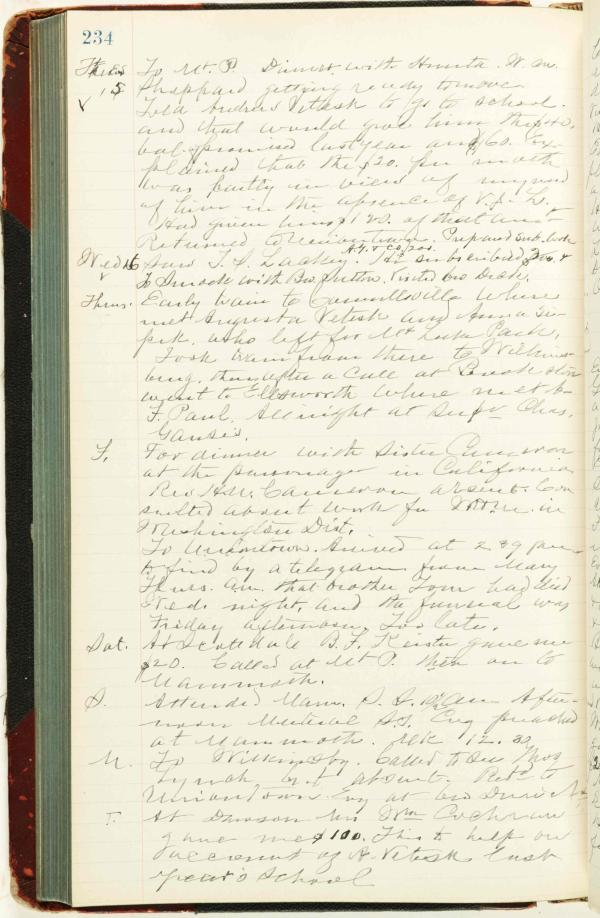 234
Tues To Mt. P. Dinner with Hunter. W. M.
15 Sheppard getting ready to move.
Told Andrew Vetesk to go to school.
and that would give him the $40.
bal. promised last year and $60. Ex-
plained that the $20. per month
was partly in view of my need
of him in the absence of V. J. L.
Had given him $120. of that amt
Returned to Uniontown. Prepared sub. book
A.Y. & Co. 200.
Wed 16 Saw I. L. Lackey. He subscribed &
To Smock with Bro. Sutton. Visited Bro
Thurs. Early train to Connellsville where
met Augusta Vetesk and Anna
who left for Mt Lake Park.
Took train from there to
burg, then after a call at
went to Ellsworth where met
F. Paul. All night at Supt Chas.
Gause's.
F. For dinner with Sister Cameron
at the parsonage in California
Rev. Cameron absent. Con
sulted about work for in
Washington Dist.
To Uniontown. Arrived at 2 39 pm
to find by a telegram from Mary
Thurs. am. that brother Tom had died
Wed. night, and the funeral was
Friday afternoon. Too late.
Sat. At Scottdale B. F. Keister gave me
$20. Called at Mt P. then on to
Mammoth.
S. Attended Mam. S. S. 10 am After-
noon S.S. Evg preached
at Mammoth. 12. 30
M. To . Called to see Thos
Lynch but absent. Retd to
Uniontown. Evg at
T. At Dawson Mrs Cochran
gave me $100. This to help on
account of A. Vetesk last
year's school